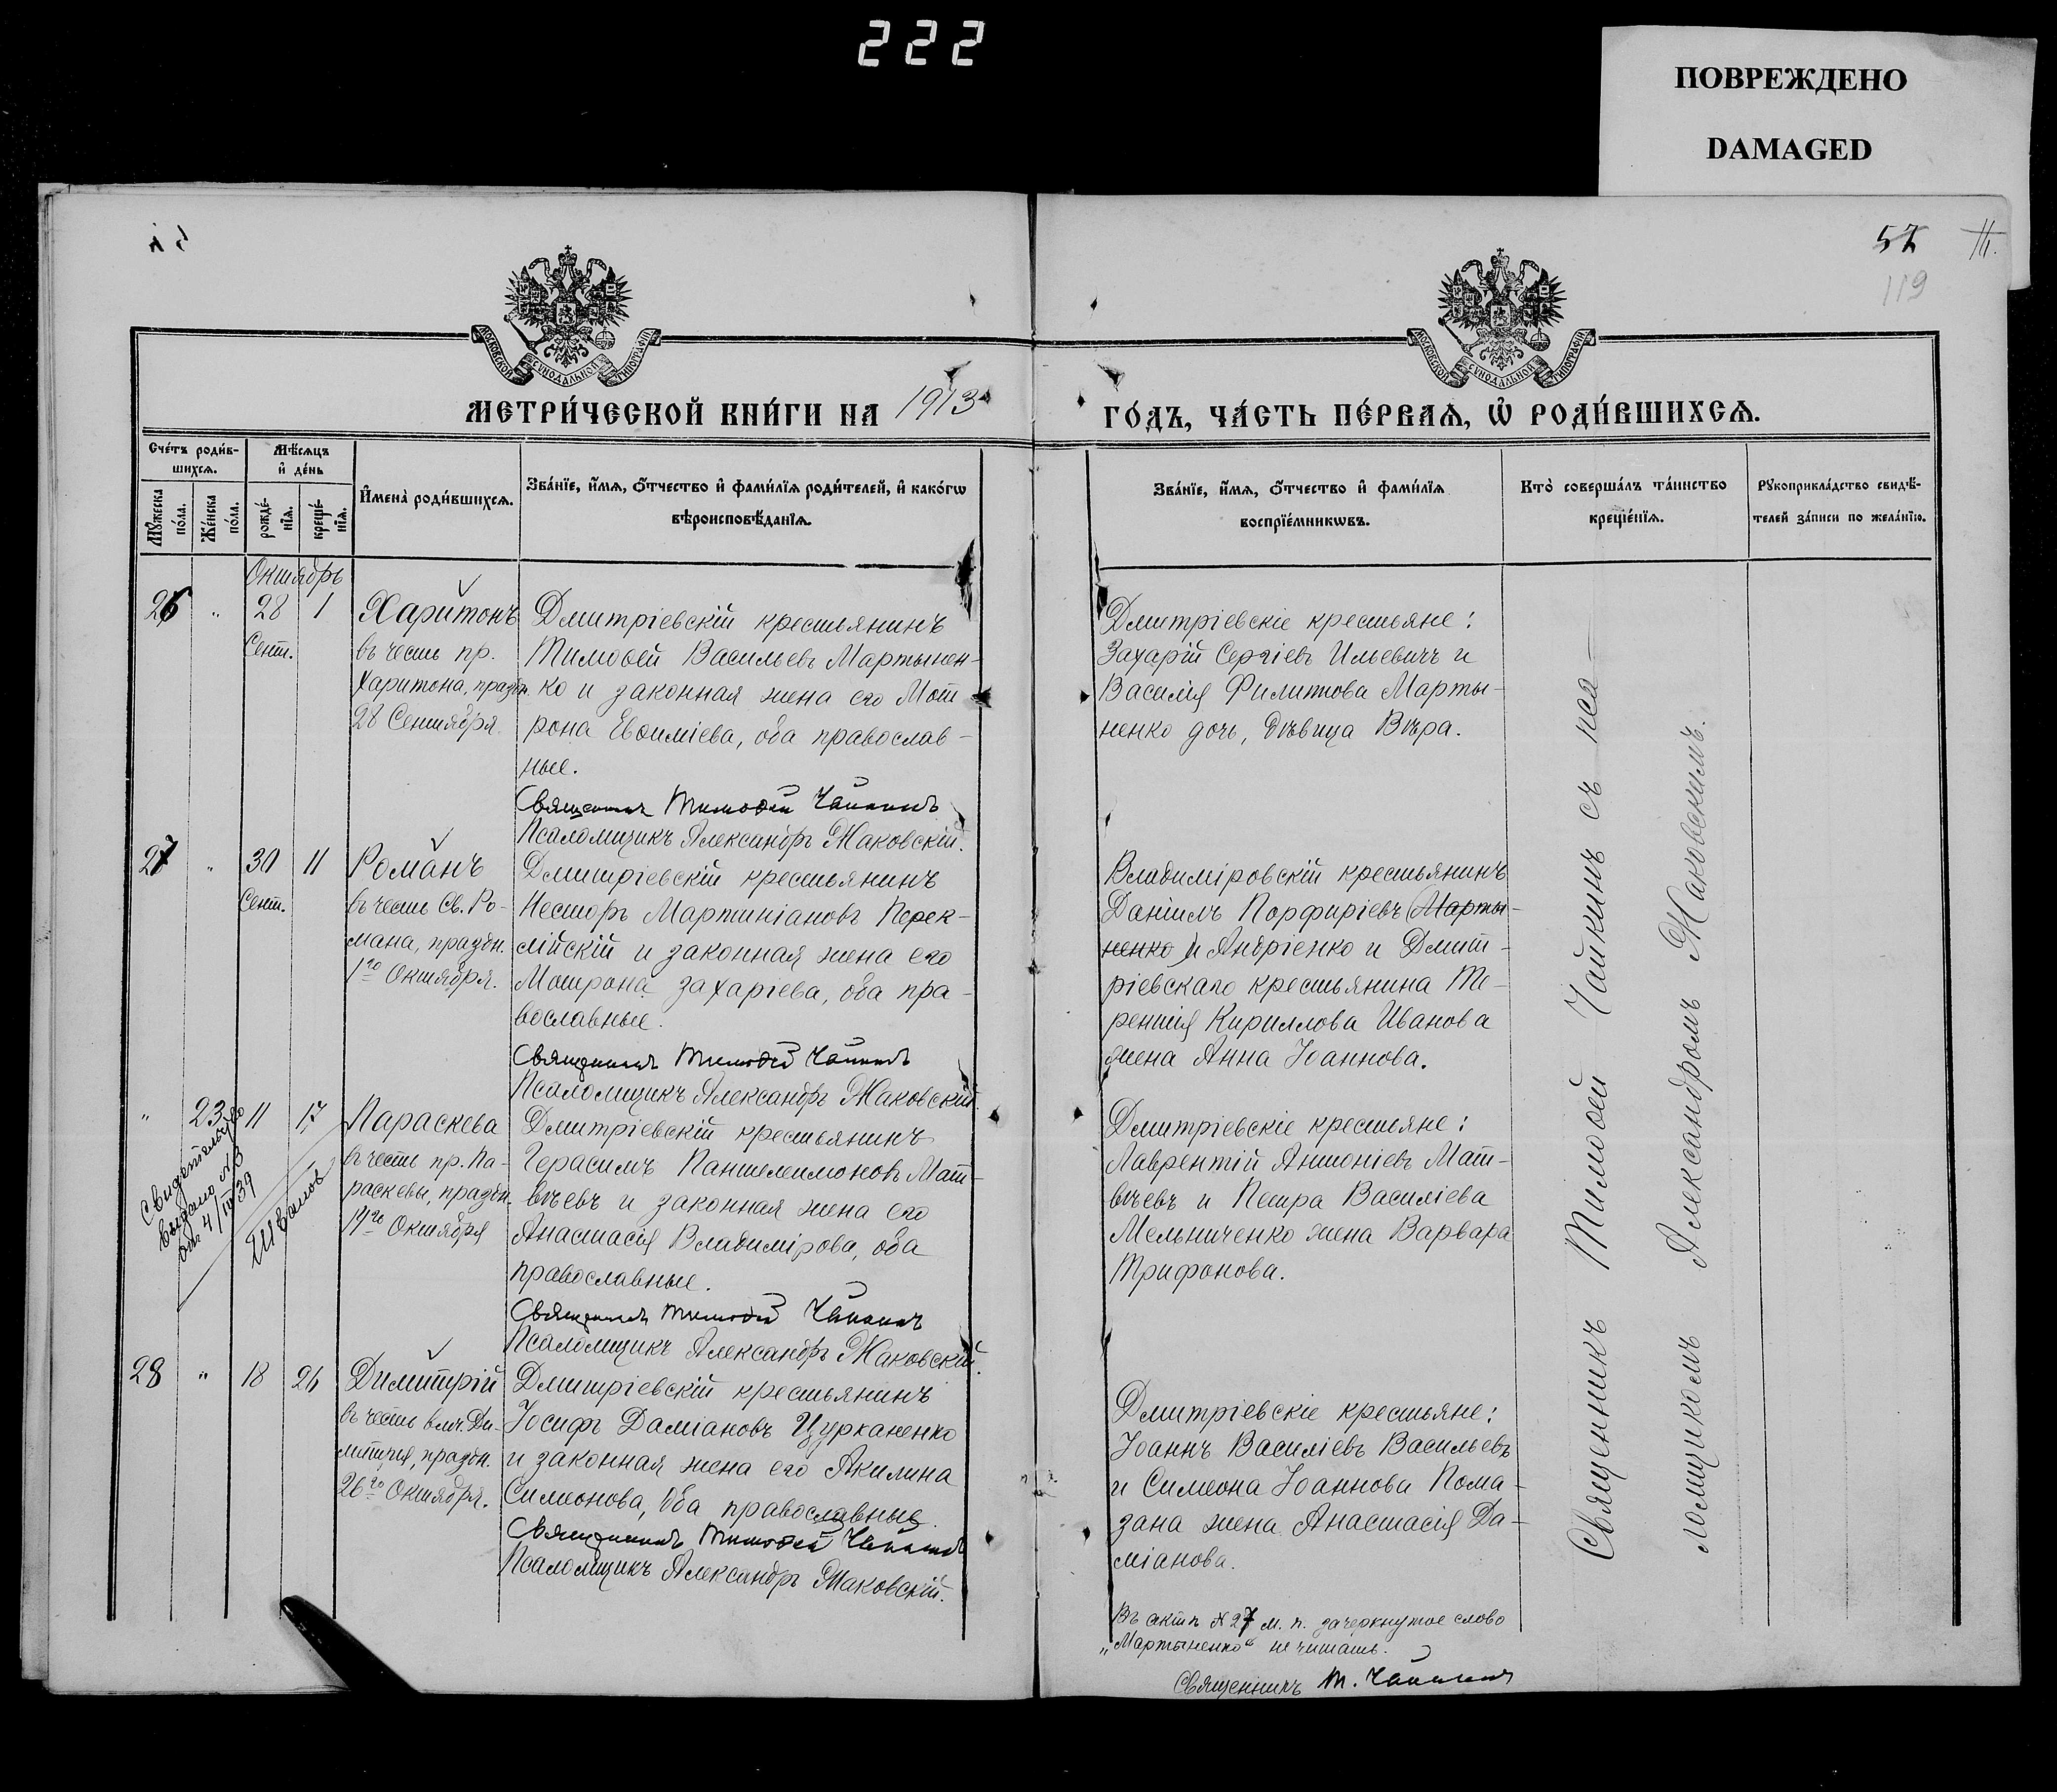 222
ПОВРЕЖДЕНО
DAMAGED
57
119
МОСКОВСКОЙ СѴНОДАЛЬНОЙ ТИПОГРАФІИ
МОСКОВСКОЙ СѴНОДАЛЬНОЙ ТИПОГРАФІИ
МЕТРИ́ЧЕСКОЙ КНИ́ГИ НА 1913
ГО́ДЪ, ЧА́СТЬ ПЕ́РВАѦ, Ѡ҆ РОДИ́ВШИХСѦ.
Сче́тъ роди́в-
шихсѧ.
Мѣ́сѧцъ
и҆ де́нь
Мꙋ́жеска по́ла.
Же́нска по́ла.
рожде́-
нїѧ.
креще́-
нїѧ.
И҆мена̀ роди́вшихсѧ.
Зва́нїе, и҆́мѧ, ѻ҆́тчество и҆ фами́лїѧ роди́телей, и҆ како́гѡ
вѣроисповѣ́данїѧ.
Зва́нїе, и҆́мѧ, ѻ҆́тчество и҆ фами́лїѧ
воспрїе́мникѡвъ.
Кто̀ соверша́лъ та́инство
креще́нїѧ.
Рꙋкоприкла́дство свидѣ́-
телей за́писи по жела́нїю.
Октябрь
26 " 28 1 Харитонъ
Сент.
въ честь пр.
Харитона, праздн.
28 Сентября
Дмитріевскій крестьянинъ
Тимоѳей Васильевъ Мартынен-
ко и законная жена его Мот
рона Евѳиміева, оба православ-
ные.
Священникъ Тимоѳей Чайкинъ
Псаломщикъ Александръ Маковскій.
Дмитріевскіе крестьяне:
Захарій Сергіевъ Ильевичъ и
Василія Филиппова Марты-
ненко дочь, дѣвица Вѣра.
27 " 30 11 Романъ
Сент.
въ честь Св. Ро-
мана, праздн.
1го Октября.
Дмитріевскій крестьянинъ
Несторъ Мартиніановъ Перек-
лійскій и законная жена его
Мотрона Захаріева, оба пра-
вославные.
Священникъ Тимоѳей Чайкинъ
Псаломщикъ Александръ Маковскій.
Владиміровскій крестьянинъ
Даніилъ Порфиріевъ (Марты-
ненко) Андріенко и Дмит-
ріевскаго крестьянина Те-
рентія Кириллова Иванова
жена Анна Іоаннова.
" 23 11 17 Параскева
въ честь пр. Па-
раскевы, праздн.
14го Октября
Свидетельство
выдано №3
от 4/IV 39
Дмитріевскій крестьянинъ
Герасимъ Пантелеимоновъ Мат-
вѣевъ и законная жена его
Анастасія Владимірова, оба
православные.
Священникъ Тимоѳей Чайкинъ
Псаломщикъ Александръ Маковскій.
Дмитріевскіе крестьяне:
Лаврентій Антоніевъ Мат-
вѣевъ и Петра Василіева
Мельниченко жена Варвара
Трифонова.
28 " 18 26 Димитрій
въ честь влмч. Ди-
митрія, праздн.
26го Октября.
Дмитріевскій крестьянинъ
Іосифъ Даміановъ Цурканенко
и законная жена его Акилина
Симеонова, оба православные.
Священникъ Тимоѳей Чайкинъ
Псаломщикъ Александръ Маковскій.
Дмитріевскіе крестьяне:
Іоаннъ Василіевъ Васильевъ
и Симеона Іоаннова Пома-
зана жена Анастасія Да-
міанова.
Священникъ Тимоѳей Чайкинъ съ пса-
ломщикомъ Александромъ Маковскимъ.
Въ актѣ №27 м. п. зачеркнутое слово
"Мартыненко" не читать.
Священникъ Т. Чайкинъ